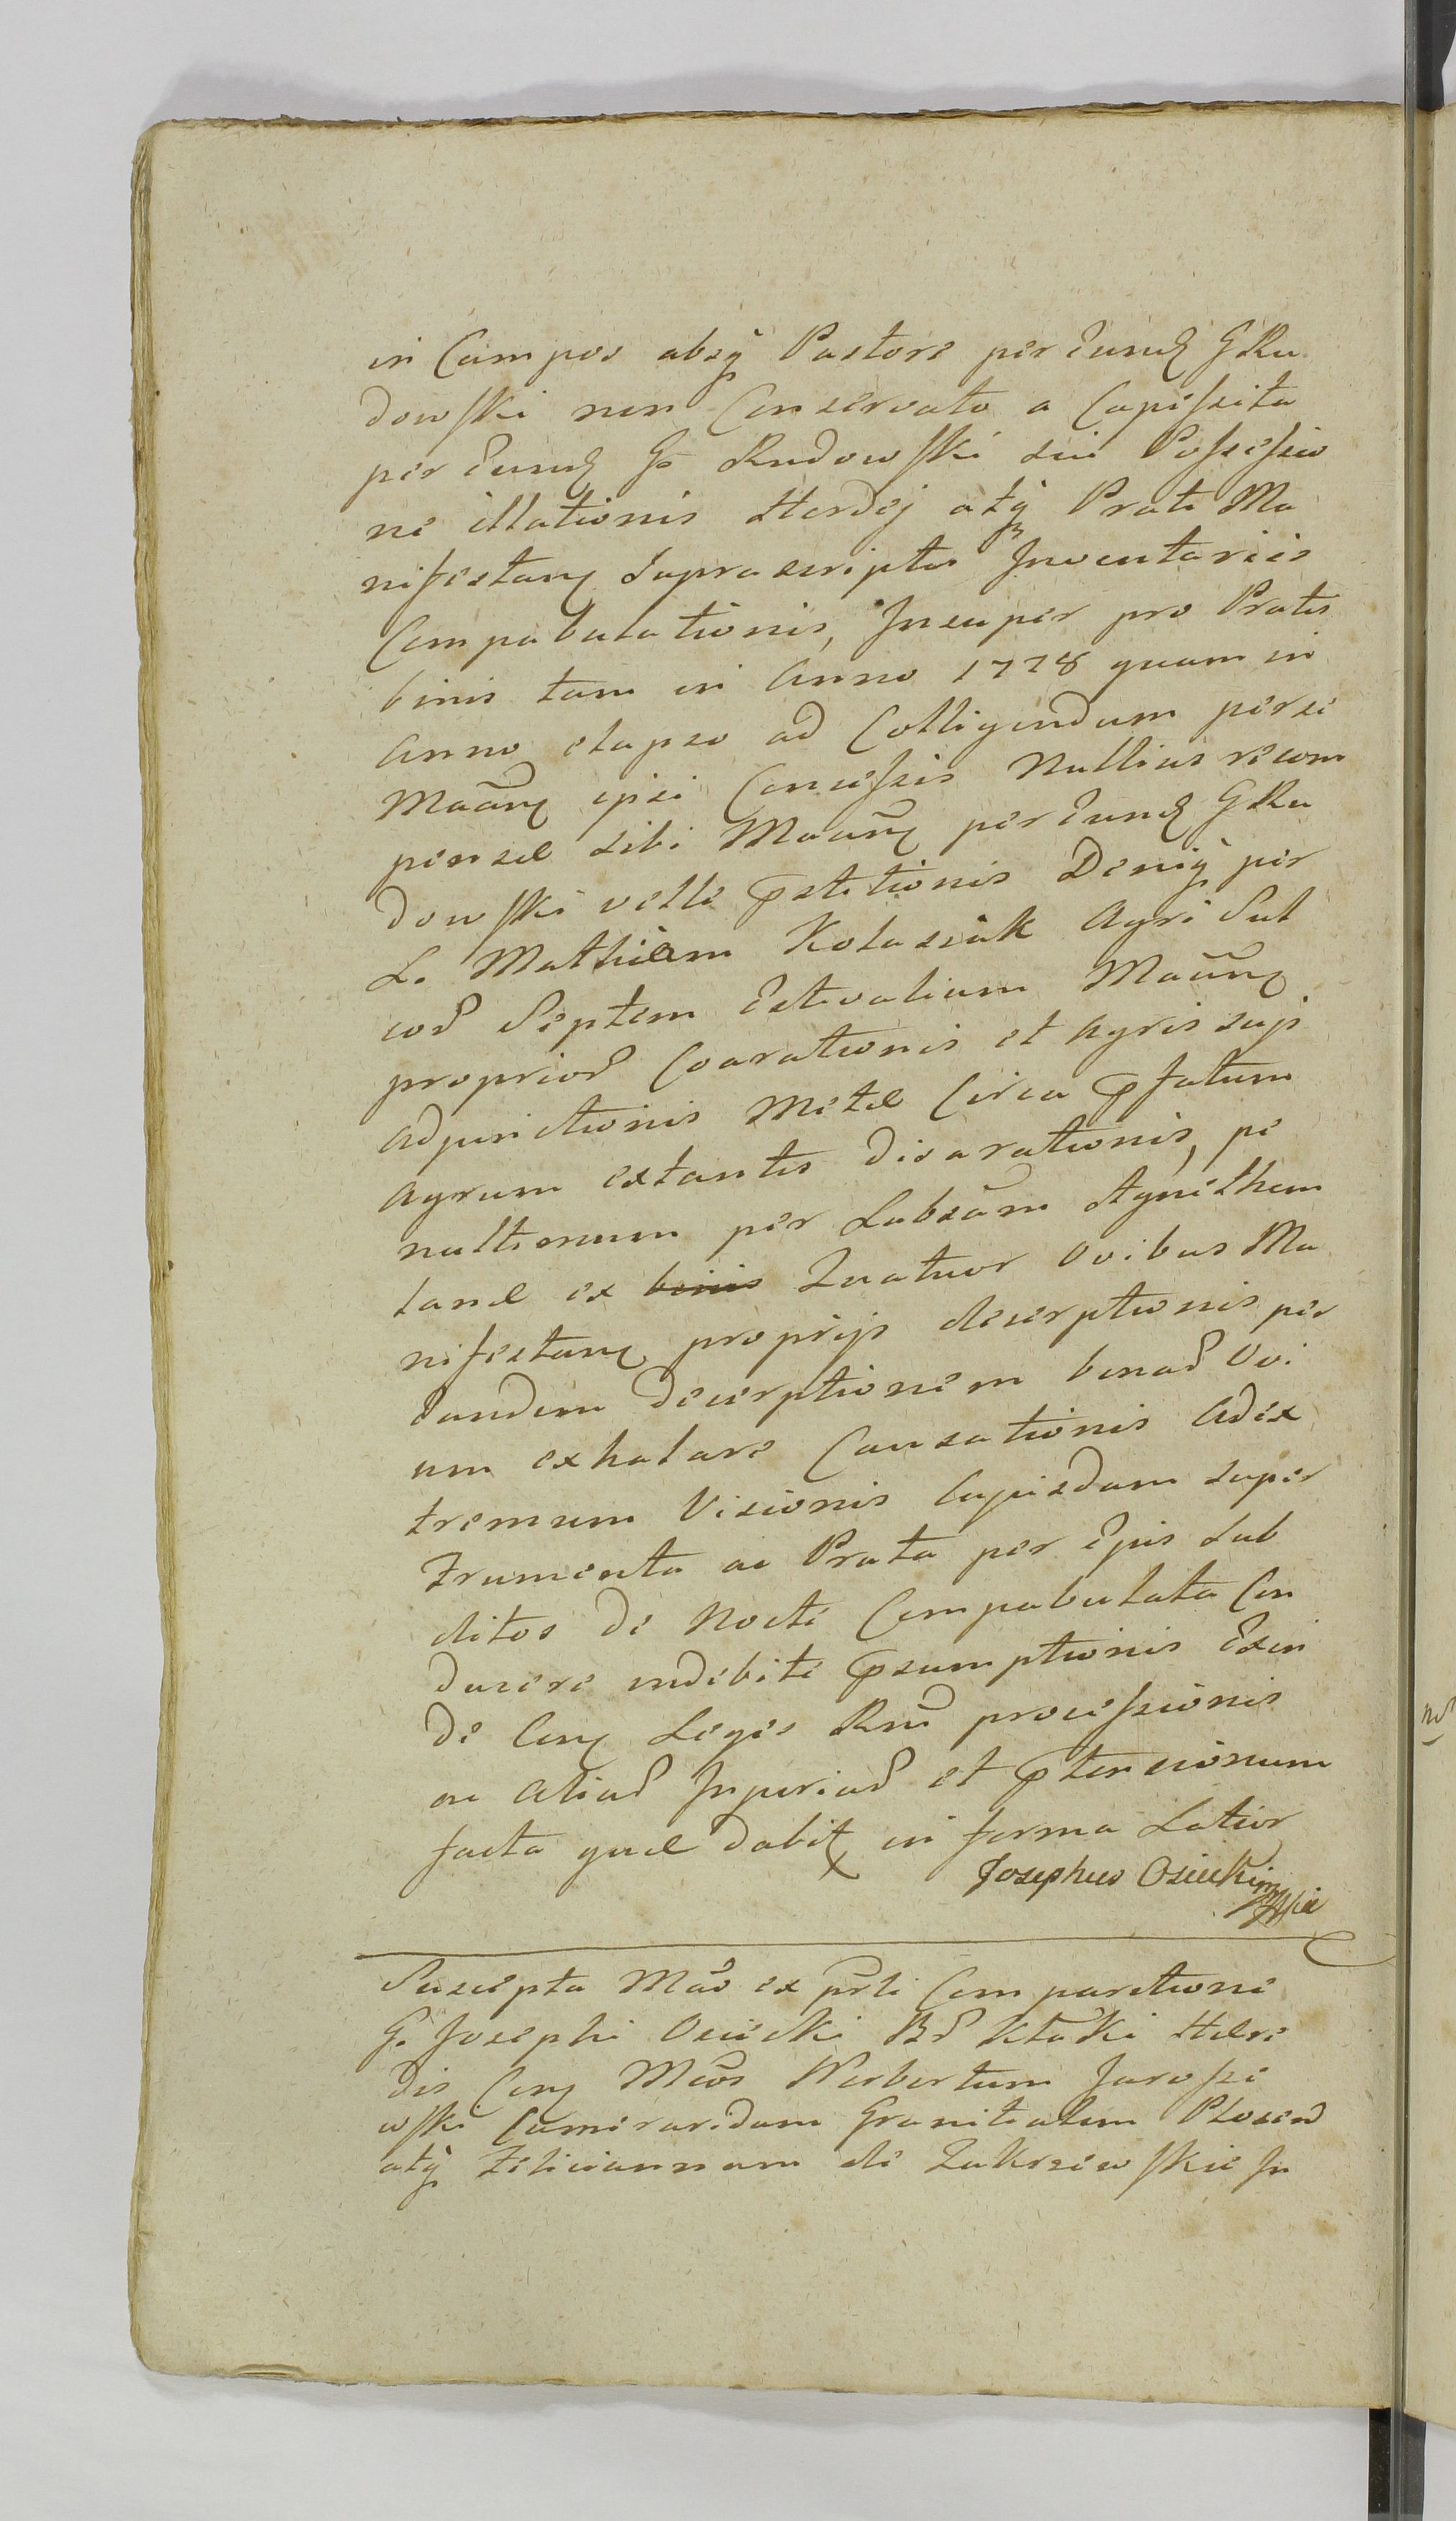 in Campos absq Pastore per Eund G Ru
dowski non Conservato a Capessita
per Eund G Rudowski sui Possessio
ne illationis Hordej atq Prati Ma
nifestan suprascriptis Inventariis
Compabulationis, Insuper pro Pratis
binis tam in Anno 1778 quam in
Anno elapso ad Colligendum per se
Maan ipsi Concessis Nullius recom
pensæ sibi Maan per Eund G Ru
dowski velle pstitionis Deniq per
L. Mathiam Kolasiak Agri Sul
cor Septem Estivalium Maan
proprior Coarationis et Agris suis
Adjunctionis Metæ Circa pfatum
Agrum extantis disarationis, pe
nultimum per Subsam Agnethem
lanæ ex binis Quatuor Ovibus Ma
nifestan proprijs decerptionis per
Eandem decerptionem binar Ovi
um exhalare Causationis Adex
tremum Visionis Cujusdam super
Frumenta ac Prata per Ejus Sub
ditos de Nocte Compabulata Con
ducere indebite psumptionis Exin
de Con Leges Rni processionis
ac Aliar Injuriar et ptensionum
facta quæ dabit in forma Latior
Josephus Osiecki mpia
Suscepta Mao ex prli Comparitione
G. Josephi Osiecki Br Ktoki Hære
dis Con Meos Norbertum Jarosze
wski Cameraridam Granitialem Plocen
atq Felicianam de Zakrzewskie In